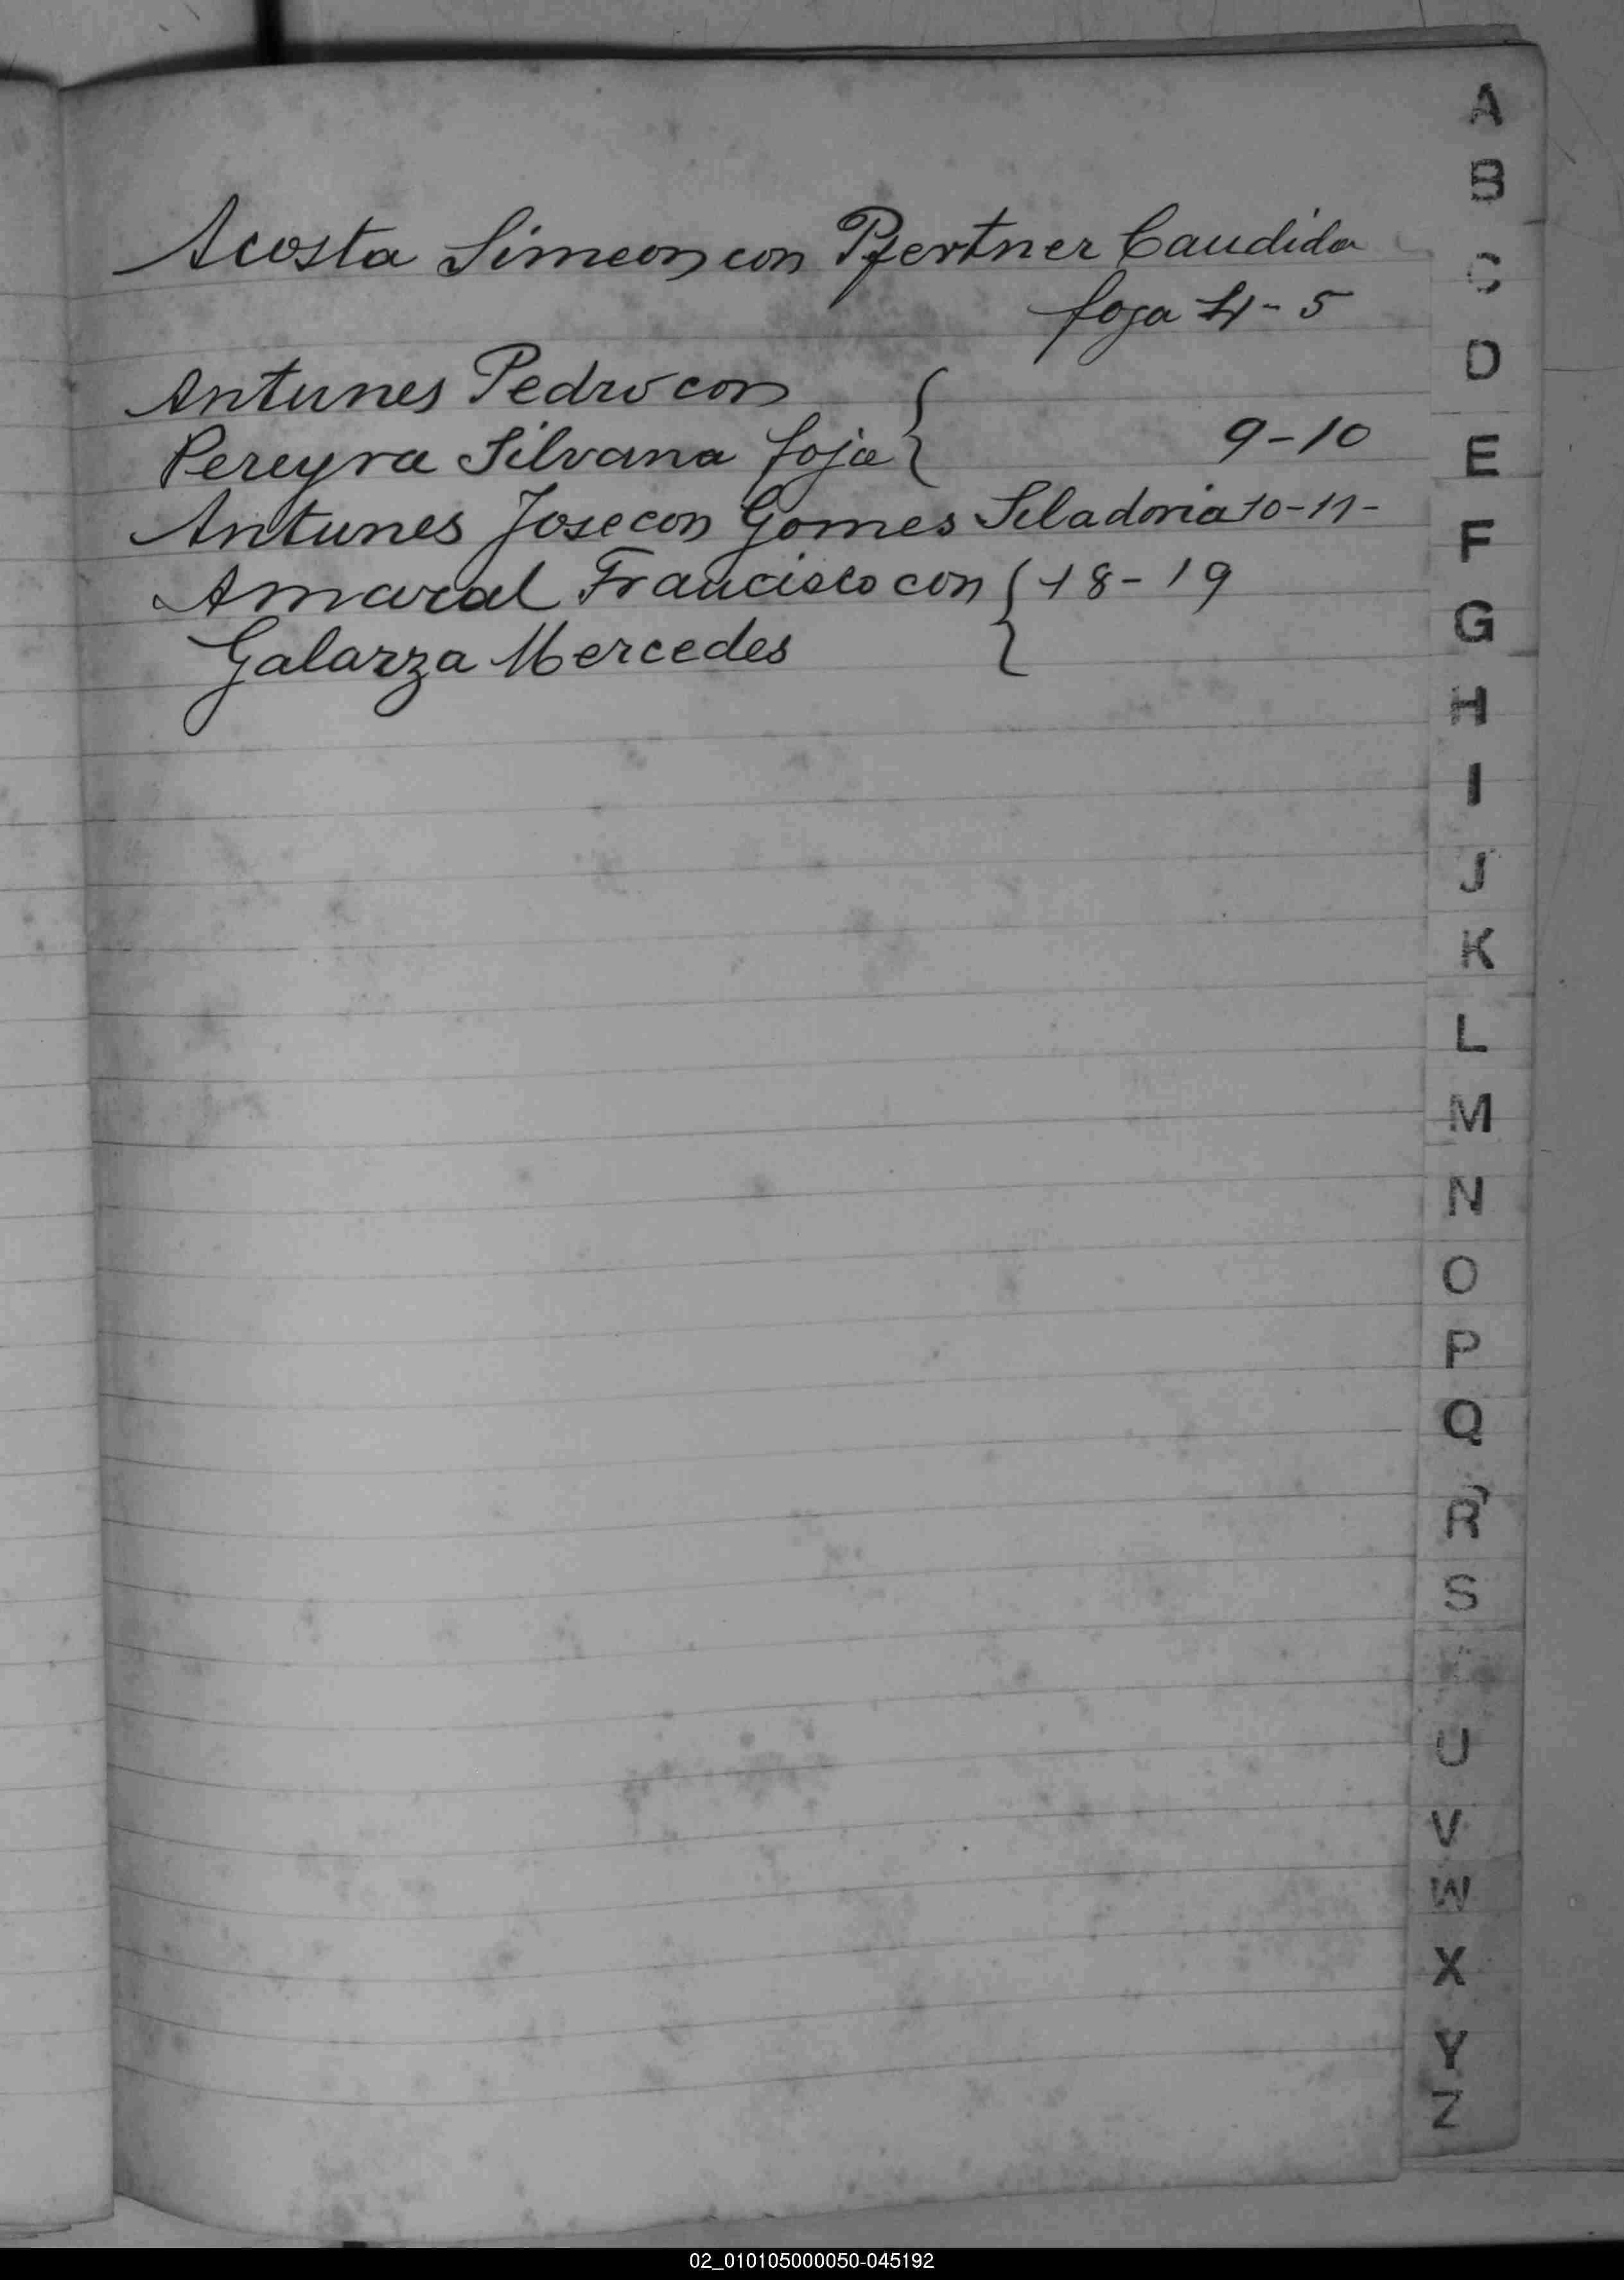 Acosta Simeon con Pfertner Candida
foja 4-5
Antunes Pedro con
Pereyra Silvana foja { 9-10
Antunes Jose con Gomes Seladoria 10-11-
Amaral Francisco con { 18-19
Galarza Mercedes
A
B
C
D
E
F
G
H
I
J
K
L
M
N
O
P
Q
R
S
U
V
W
X
Y
Z
02_010105000050-045192